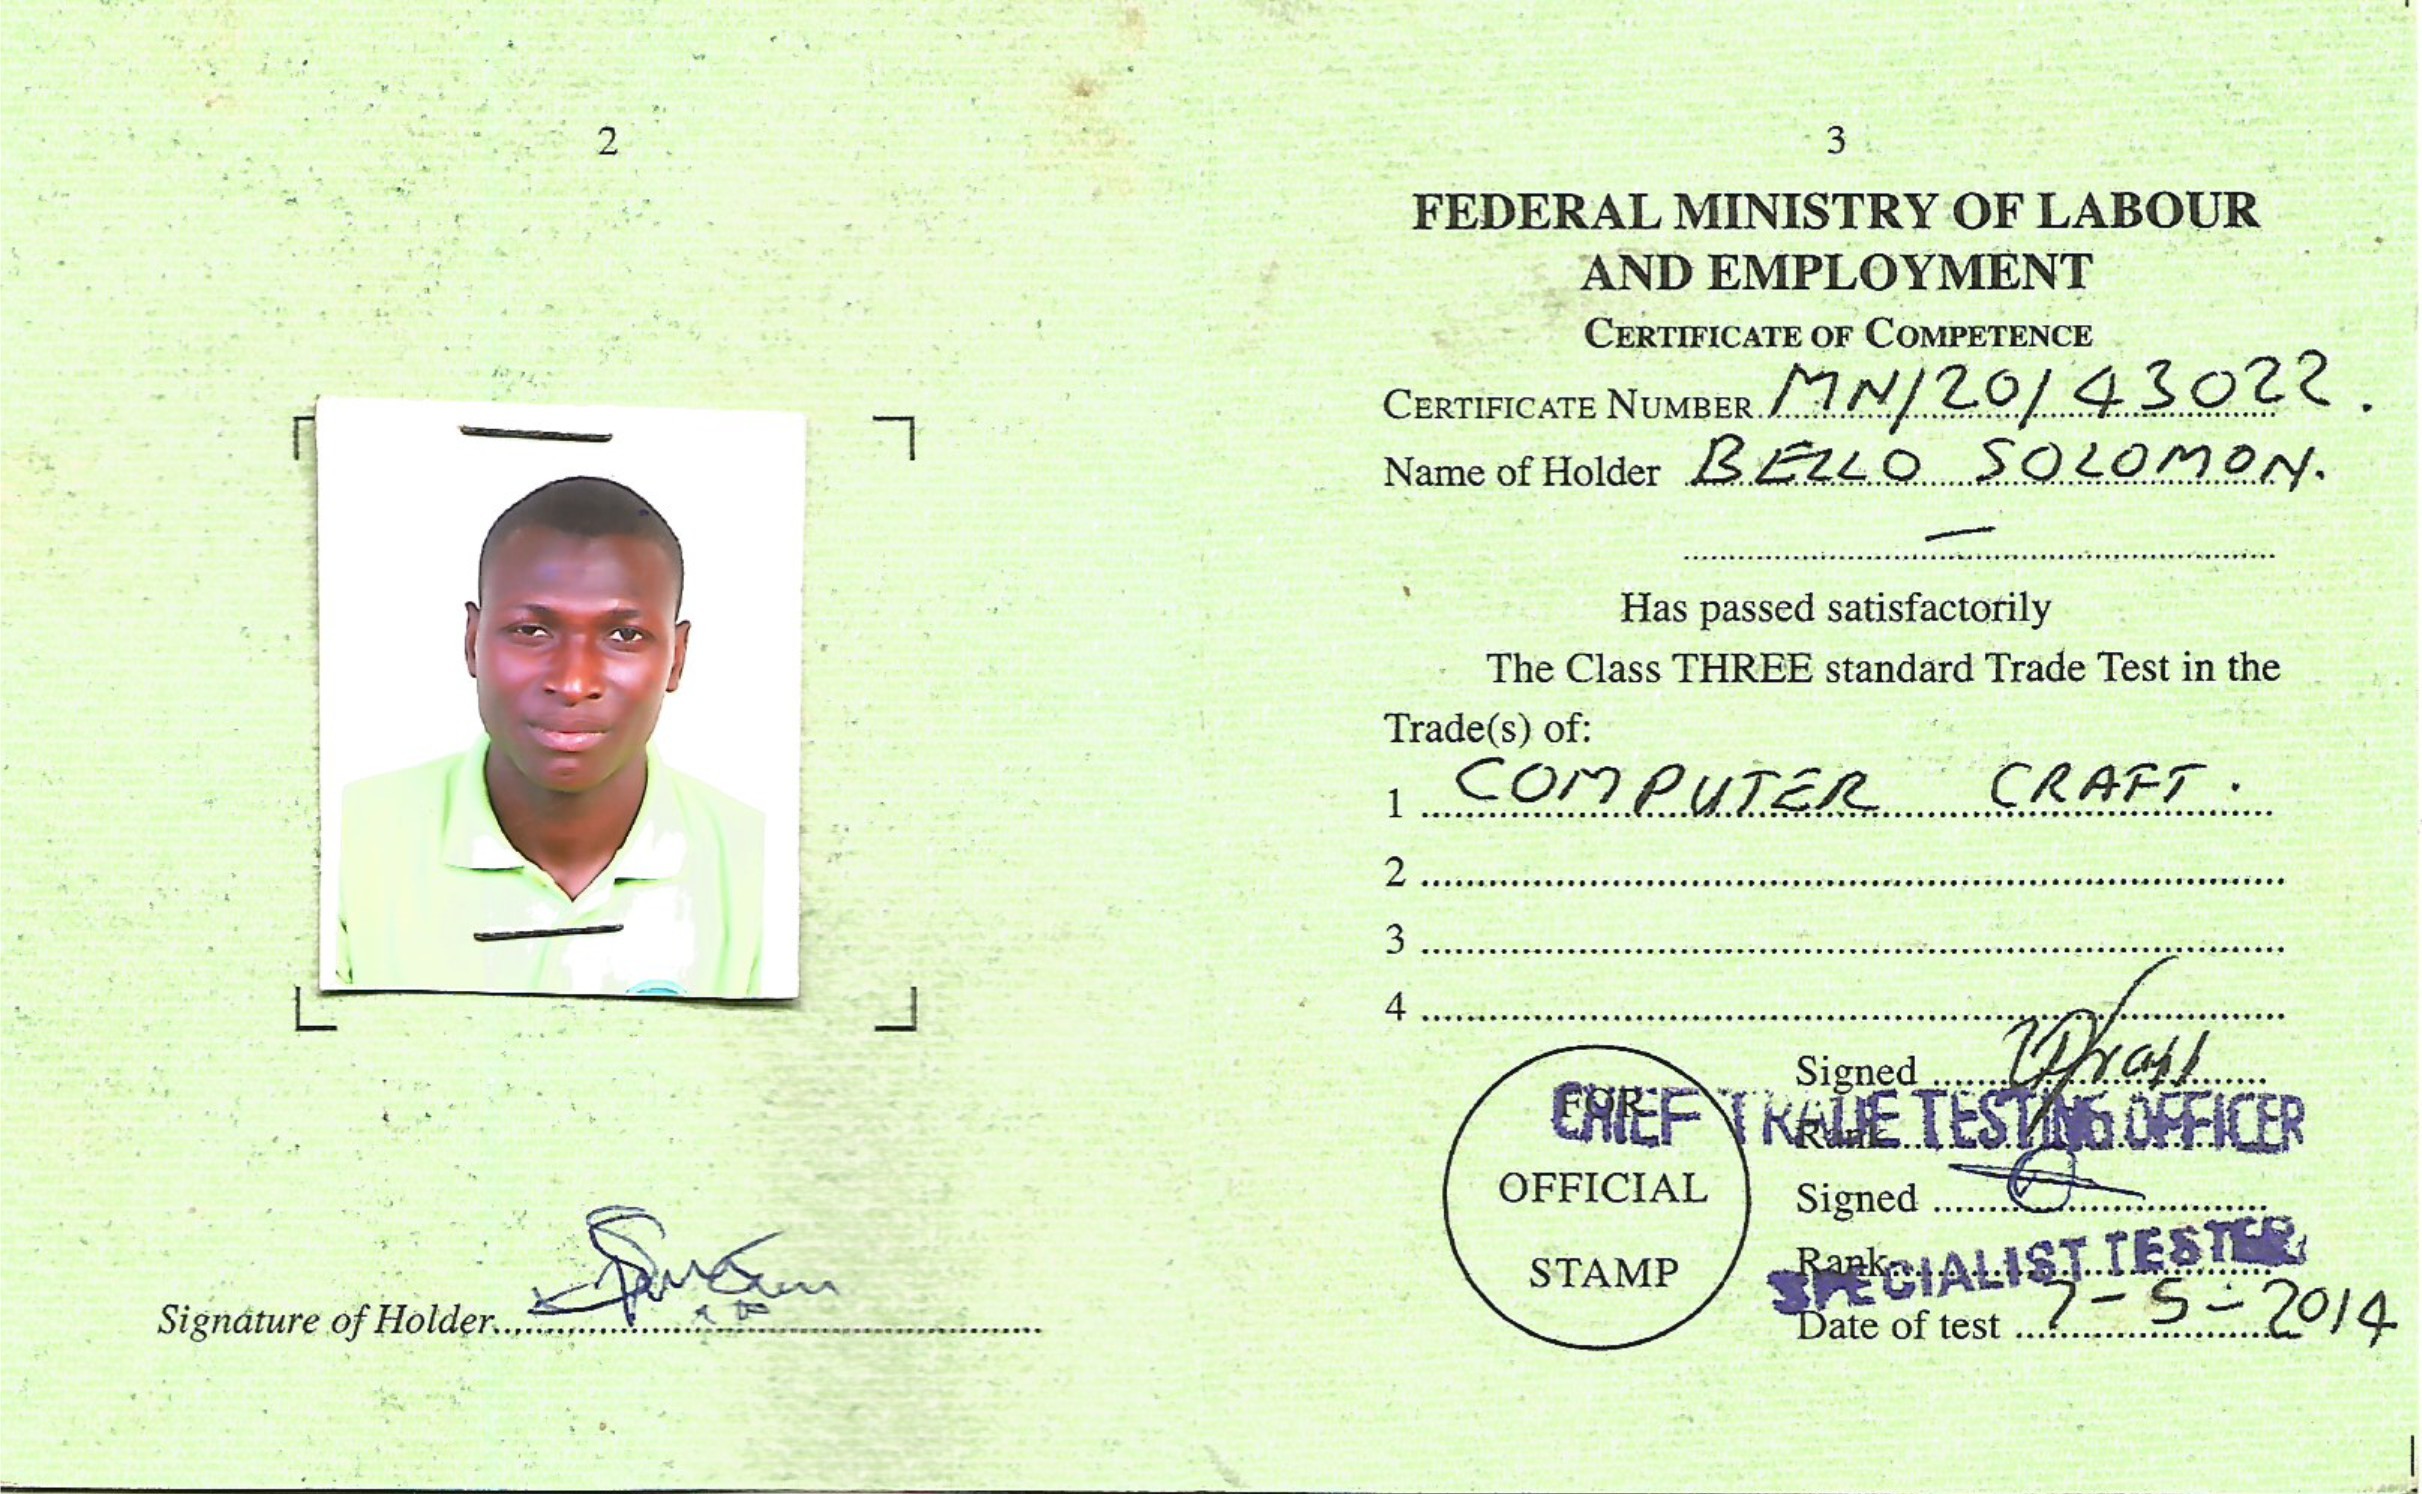 2
Signature of Holder
3
FEDERAL MINISTRY OF LABOUR
AND EMPLOYMENT
CERTIFICATE OF COMPETENCE
CERTIFICATE NUMBER MN/20143022.
Name of Holder BELLO SOLOMON.
Has passed satisfactorily
The Class THREE standard Trade Test in the
Trade(s) of:
1 COMPUTER CRAFT.
2
3
4
FOR
OFFICIAL
STAMP
Signed
CHIEF TRADE TESTING OFFICER
Rank
Signed
Rank
SPECIALIST TESTER
Date of test 7-5-2014